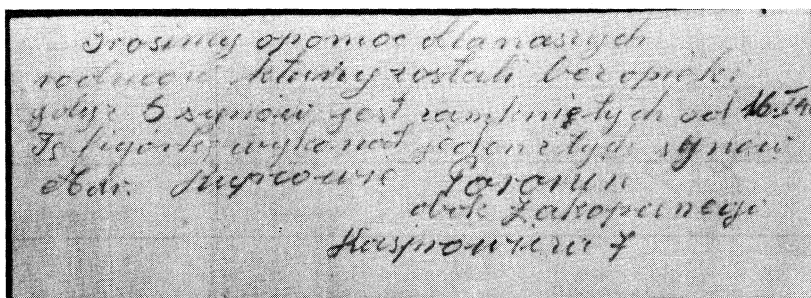 Prosimy o pomoc dla naszych
rodziców którzy zostali bez opieki
gdyż 5 synów jest zamkniętych od 16.I.40
Tę figórkę wykonał jeden z tych synów
Adr. Kupcowie Poronin
obok Zakopanego
Kasprowicza 7